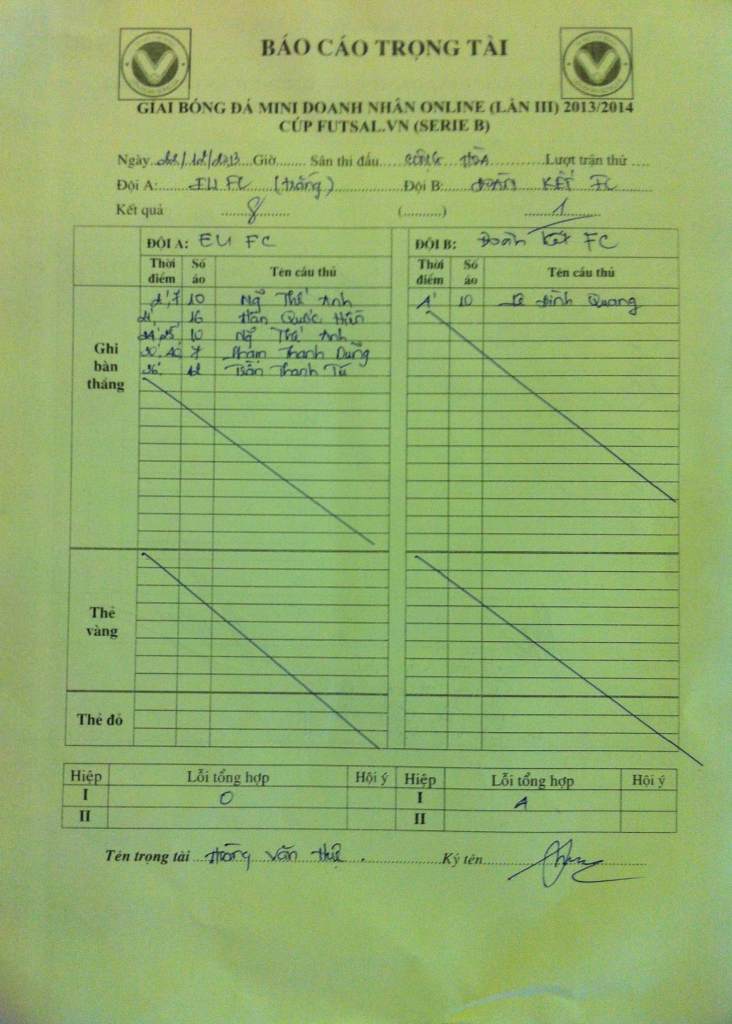 BÁO CÁO TRỌNG TÀI
GIẢI BÓNG ĐÁ MINI DOANH NHÂN ONLINE (LẦN III) 2013/2014
CÚP FUTSAL.VN (SERIE B)
Ngày 22/12/2013 Giờ........ Sân thi đấu CỘNG HÒA Lượt trận thứ ....
Đội A: EU FC (trắng) Đội B: ĐOÀN KẾT FC
Kết quả 8 (..........) 1
ĐỘI A: EU FC ĐỘI B: Đoàn Kết FC
Thời điểm Số áo Tên cầu thủ Thời điểm Số áo Tên cầu thủ
Ghi bàn thắng
10 Ngô Thế Anh 10 Lê Đình Quang
16 Hán Quốc Hiến
10 Ngô Thế Anh
7 Phạm Thanh Dũng
12 Trần Thanh Tú
Thẻ vàng
Thẻ đỏ
Hiệp Lỗi tổng hợp Hội ý Hiệp Lỗi tổng hợp Hội ý
I 0 I
II II
Tên trọng tài Văn Huệ Ký tên